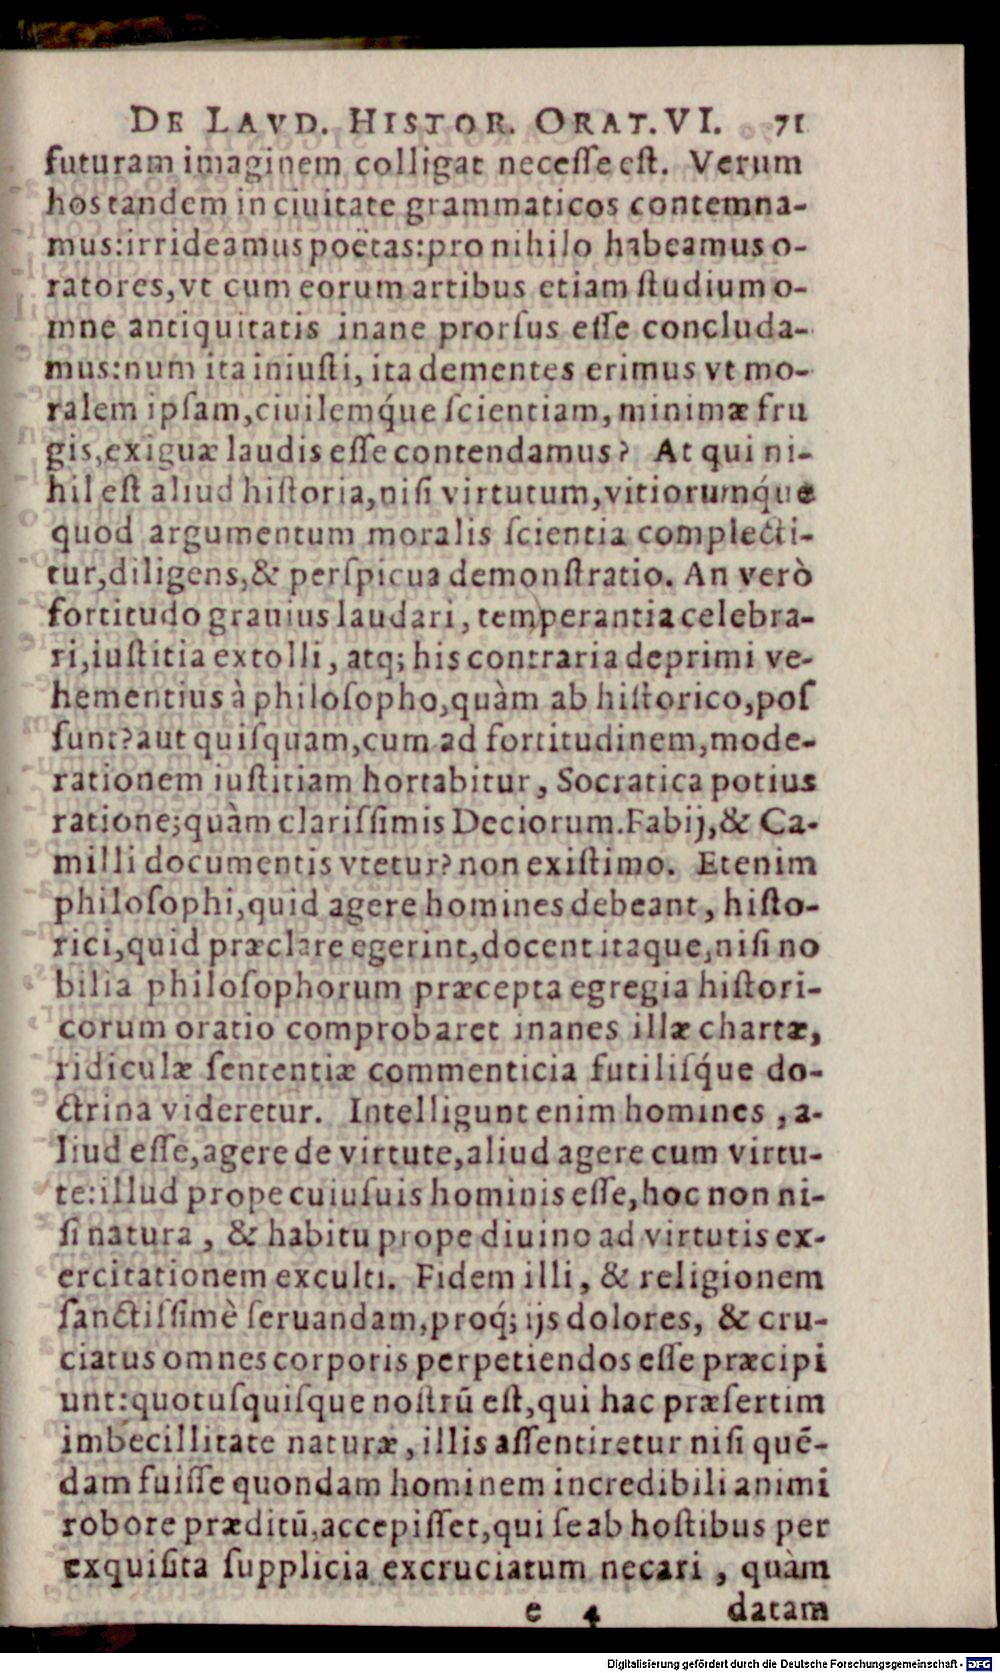 DE LAVD. HISTOR. ORAT. VI. 71
futuram imaginem colligat neceſſe eſt. Verum
hos tandem in ciuitate grammaticos contemna-
mus: irrideamus poëtas: pro nihilo habeamus o-
ratores, vt cum eorum artibus etiam ſtudium o-
mne antiquitatis inane prorſus eſſe concluda-
mus: num ita iniuſti, ita dementes erimus vt mo-
ralem ipſam, ciuilemq́ue ſcientiam, minimæ fru
gis, exiguæ laudis eſſe contendamus? At qui ni-
hil eſt aliud hiſtoria, niſi virtutum, vitiorumq́ue
quod argumentum moralis ſcientia complecti-
tur, diligens, & perſpicua demonſtratio. An verò
fortitudo grauius laudari, temperantia celebra-
ri, iuſtitia extolli, atq; his contraria deprimi ve-
hementius à philoſopho, quàm ab hiſtorico, poſ
ſunt? aut quiſquam, cum ad fortitudinem, mode-
rationem iuſtitiam hortabitur, Socratica potius
ratione; quàm clariſſimis Deciorum. Fabij, & Ca-
milli documentis vtetur? non exiſtimo. Etenim
philoſophi, quid agere homines debeant, hiſto-
rici, quid præclare egerint, docent itaque, niſi no
bilia philoſophorum præcepta egregia hiſtori-
corum oratio comprobaret inanes illæ chartæ,
ridiculæ ſententiæ commenticia futiliſq́ue do-
ctrina videretur. Intelligunt enim homines, a-
liud eſſe, agere de virtute, aliud agere cum virtu-
te: illud prope cuiuſuis hominis eſſe, hoc non ni-
ſi natura, & habitu prope diuino ad virtutis ex-
ercitationem exculti. Fidem illi, & religionem
ſanctiſſimè ſeruandam, proq́; ijs dolores, & cru-
ciatus omnes corporis perpetiendos eſſe præcipi
unt: quotuſquiſque noſtrū eſt, qui hac præſertim
imbecillitate naturæ, illis aſſentiretur niſi quē-
dam fuiſſe quondam hominem incredibili animi
robore præditū, accepiſſet, qui ſe ab hoſtibus per
exquiſita ſupplicia excruciatum necari, quàm
e 4 datam
Digitalisierung gefördert durch die Deutsche Forschungsgemeinschaft - DFG